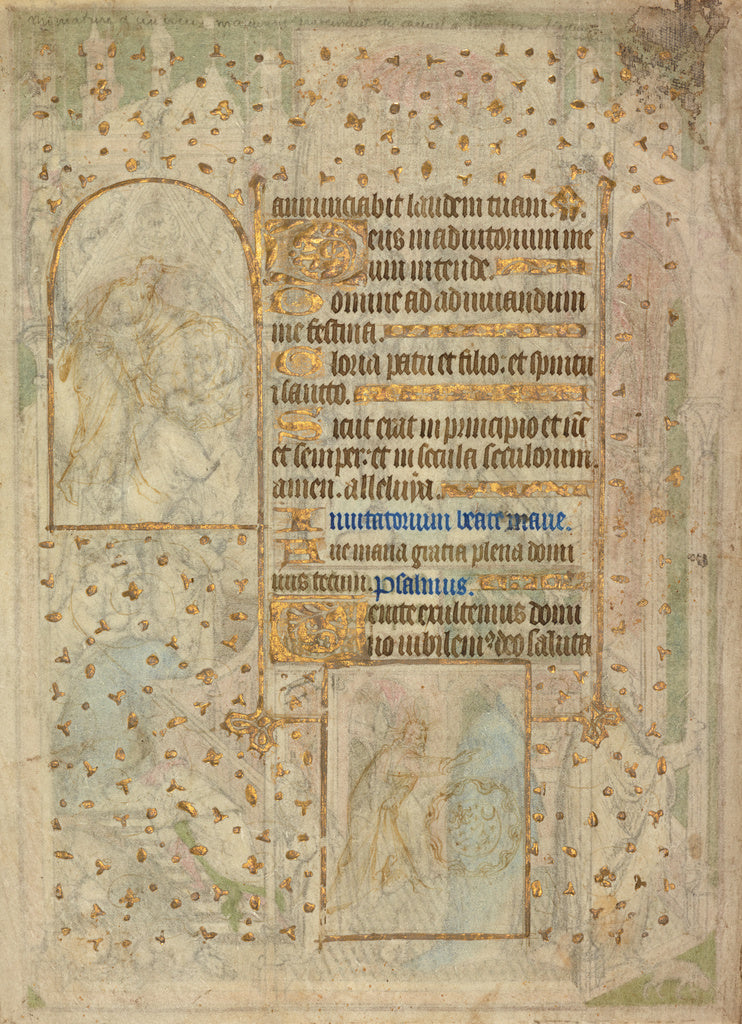 annunciabit laudem tuam.
Deus in adiutorium me
um intende.
Domine ad adiuuandum
me festina.
Gloria patri et filio. et spiritu
i sancto.
Sicut erat in principio et nūc
et semper: et in secula seculorum.
amen. alleluya.
Inuitatorium beate marie.
Aue maria gratia plena domi
nus tecum. Psalmus.
Uenite exultemus domi
no iubilem⁹ deo saluta